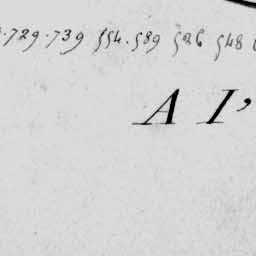 .729.739 554.589 526 548
A I'